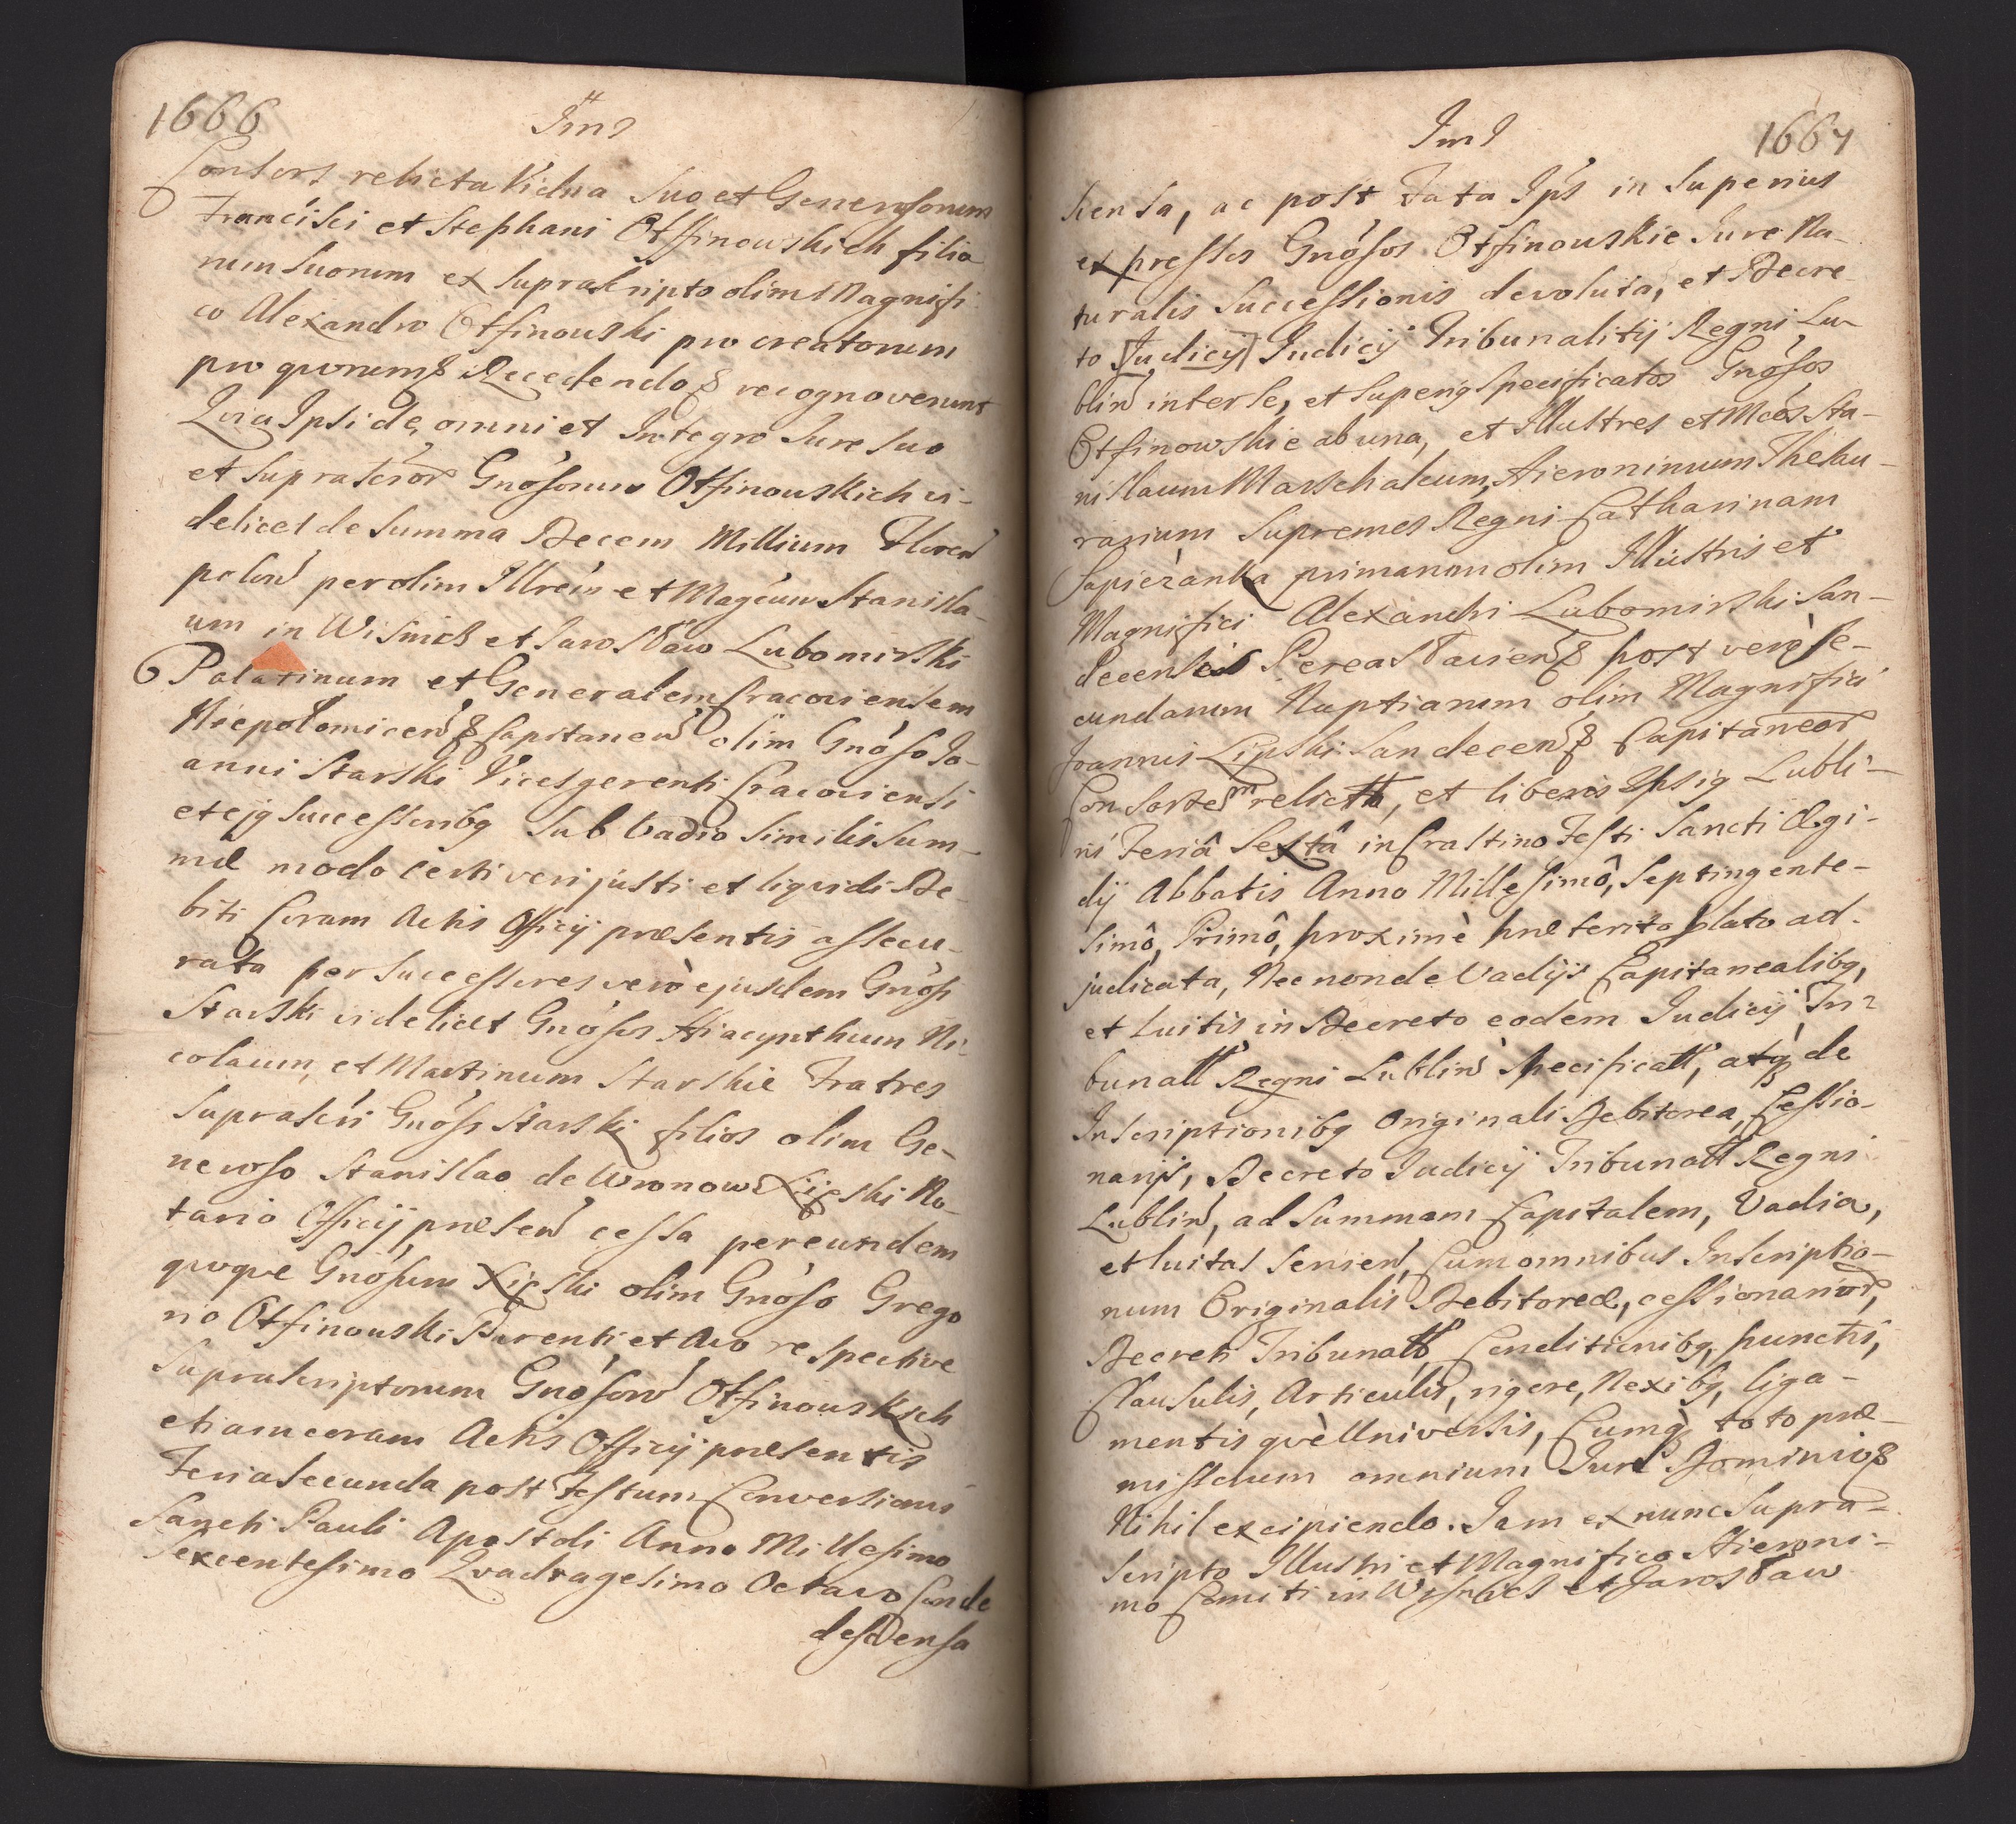 1666
Ims
Consors relicta Vidua suo et Generosorum
Francisci et Stephani Otfinowskich filio
rum suorum ex suprascripto olim Magnifi
co Alexandro Otfinouski procreatorum
pro quorum& Recedendo& recognoverunt
Quia Ipsi de omni et Integro Jure suo
et suprascror Gnósorum Otfinouskich vi-
delicet de Summa Decem Millium Floren
polon per olim Illrem et Magcum Stanisla-
um in Wisnicz et Jarosław Lubomirski
Palatinum et Generalem Cracoviensem
Niepołomicen& Capitaneu olim Gnóso Jo-
anni Starski Vicesgerenti Cracoviensi
et ejg Successoribg sub Vadio similis sum-
mæ modo certi veri justi et liqvidi De-
biti Coram Actis Officij præsentis assecu-
rata per Successores verò ejusdem Gnósi
Starski videlicet Gnósos Hiacynthum Ni-
colaum, et Martinum Starskie Fratres
suprascri Gnósi Starski filios olim Ge-
neroso Stanislao de Wronow Xięski No-
tario Officij præsen cessa per eundem
qvoqve Gnósum Xięski olim Gnóso Grego
rio Otfinouski Parenti et Avo respective
suprascriptorum Gnósoru Otfinouskich
etiam coram Actis Officij præsentis
Feria Secunda post Festum Conversionis
Sancti Pauli Apostoli Anno Millesimo
Sexcentesimo Qvadragesimo Octavo Conde
descensa
Ims
1667
scensa, ac post Fata Ips in superius
expressos Gnósos Otfinouskie Jure Na-
turalis Successionis devoluta, et Decre-
to Judicij Judicij Tribunalitij Regni Lu-
blin inter se, et superig specificatos Gnósos
Otfinowskie ab una, et Illustres et Mcos Sta-
nislaum Marschalcum, Hieronimum Thesau-
rarium Supremos Regni Catharinam
Sapieżanka primarum olim Illustris et
Magnifici Alexandri Lubomirski San-
decensis Pereasłavien& post verò se-
cundarum Nuptiarum olim Magnifici
Joannis Lipski Sandecen& Capitaneor
Consortem relictā, et liberis Ipsig Lubli-
ni Feriâ Sextâ in Crastino Festi Sancti Ægi-
dij Abbatis Anno Millesimô, Septingente-
simô, Primô, proximè præterito lato ad-
judicata, Nec non de Vadijs Capitanealibg,
et Luitis in Decreto eodem Judicij Tri-
bunall Regni Lublin specificatt, atq de
Inscriptionibg Originali Debitorea, Cessio-
narijs, Decreto Judicij Tribunall Regni
Lublin, ad Summam Capitalem, Vadia,
et luitas servien, Cum omnibus Inscriptio-
num Originalis Debitoreæ, cessionarior,
Decreti Tribunall Conditionibg, punctis,
Clausulis, Articulis, rigore, Nexibg, liga-
mentis qvè Universis, Cumq toto præ-
missorum omnium Jure Dominio&
Nihil excipiendo. Jam ex nunc Supra-
scripto Illustri et Magnifico Hieroni-
mo Comiti in Wisnicz et Jarosław